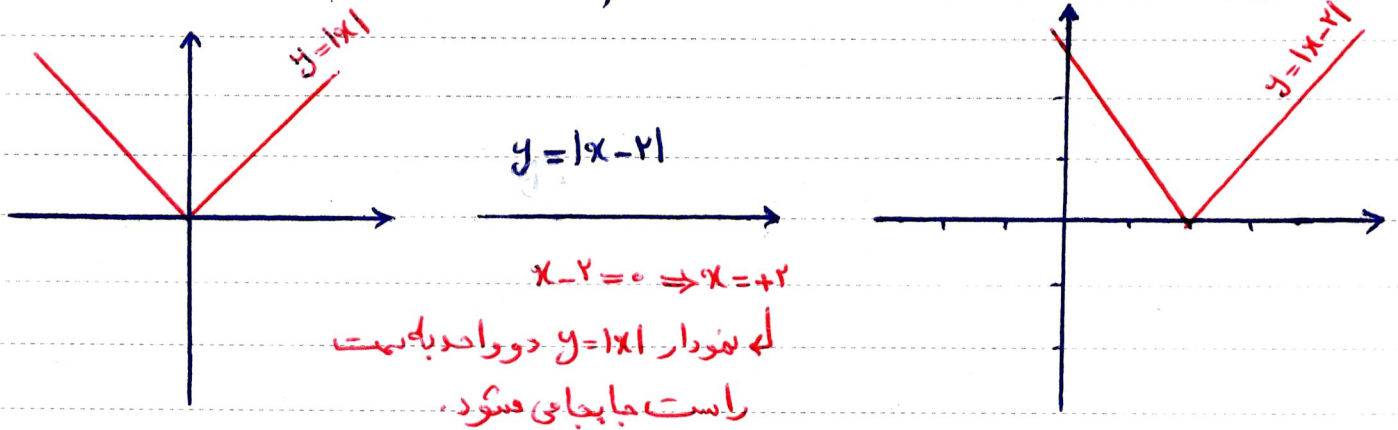 y=|x|
y=|x-۲|
y=|x-۲|
x-۲=۰ ⇒ x=+۲
نمودار y=|x| دو واحد به سمت
راست جابجا می شود.